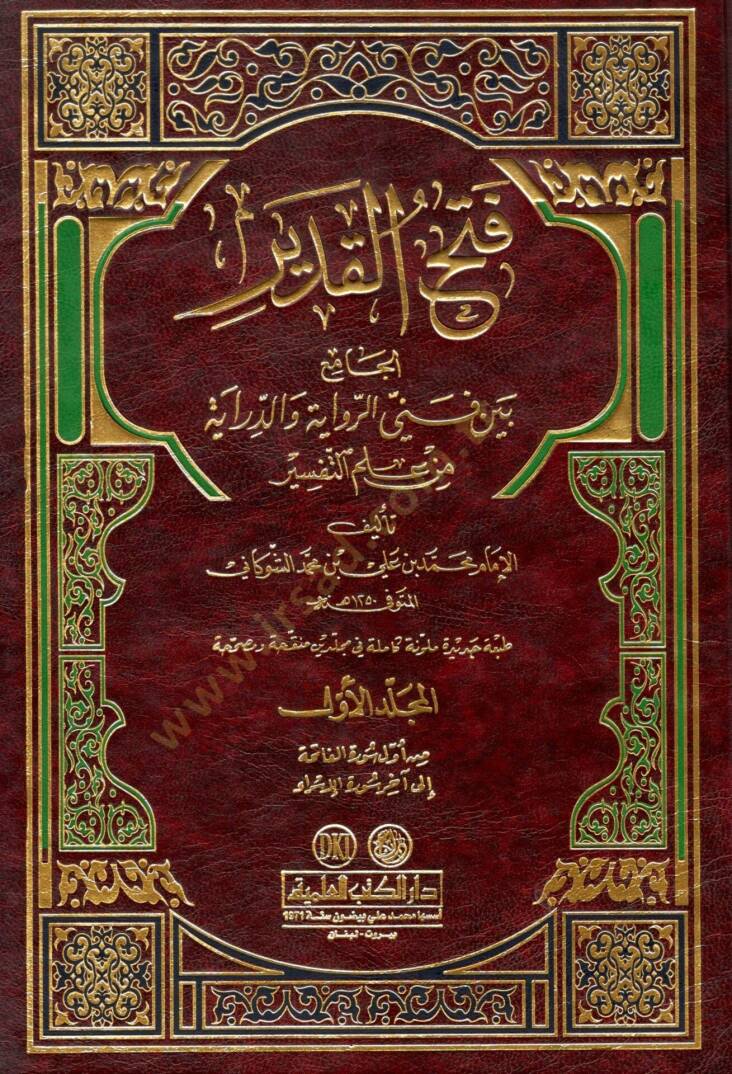 فتح القدير
الجامع
بين فني الرواية والدراية
من علم التفسير
تأليف
الإمام محمد بن علي بن محمد الشوكاني
المتوفى ١٢٥٠هـ
طبعة جديدة ملونة كاملة في مجلدين منقحة ومصححة
المجلد الأول
من أول سورة الفاتحة
إلى آخر سورة الإسراء
DKI
دار الكتب العلمية
أسسها محمد علي بيضون سنة 1971
بيروت - لبنان
www.irsad.com.tr